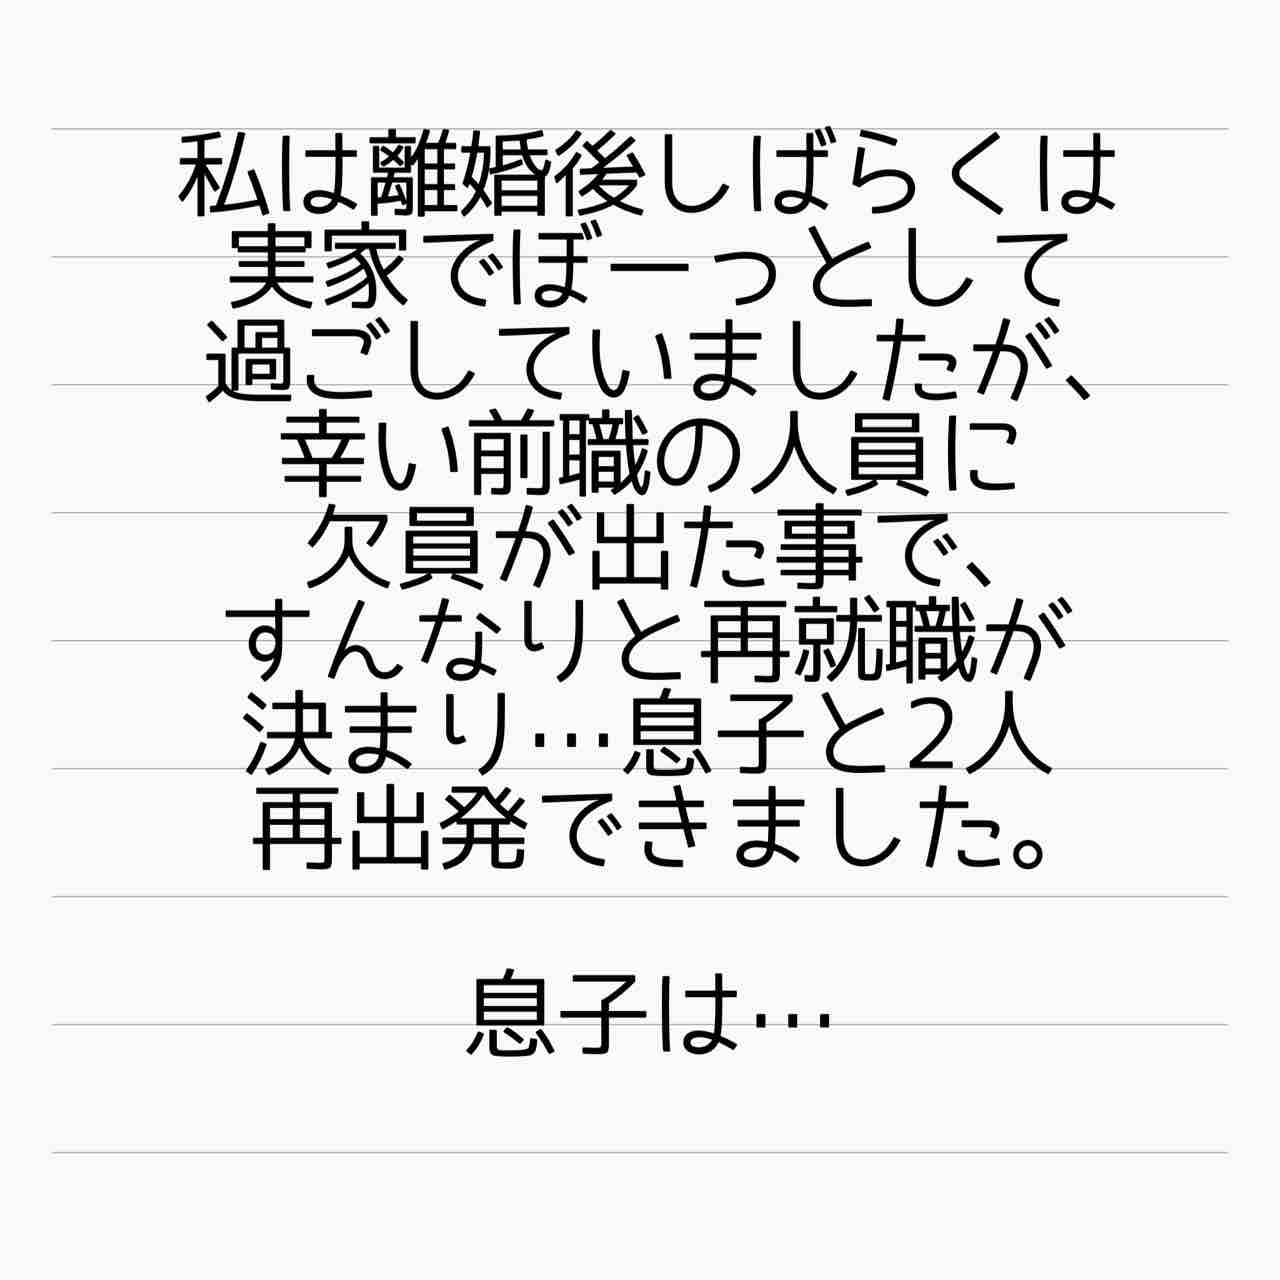 私は離婚後しばらくは
実家でぼーっとして
過ごしていましたが、
幸い前職の人員に
欠員が出た事で、
すんなりと再就職が
決まり…息子と2人
再出発できました。
息子は…